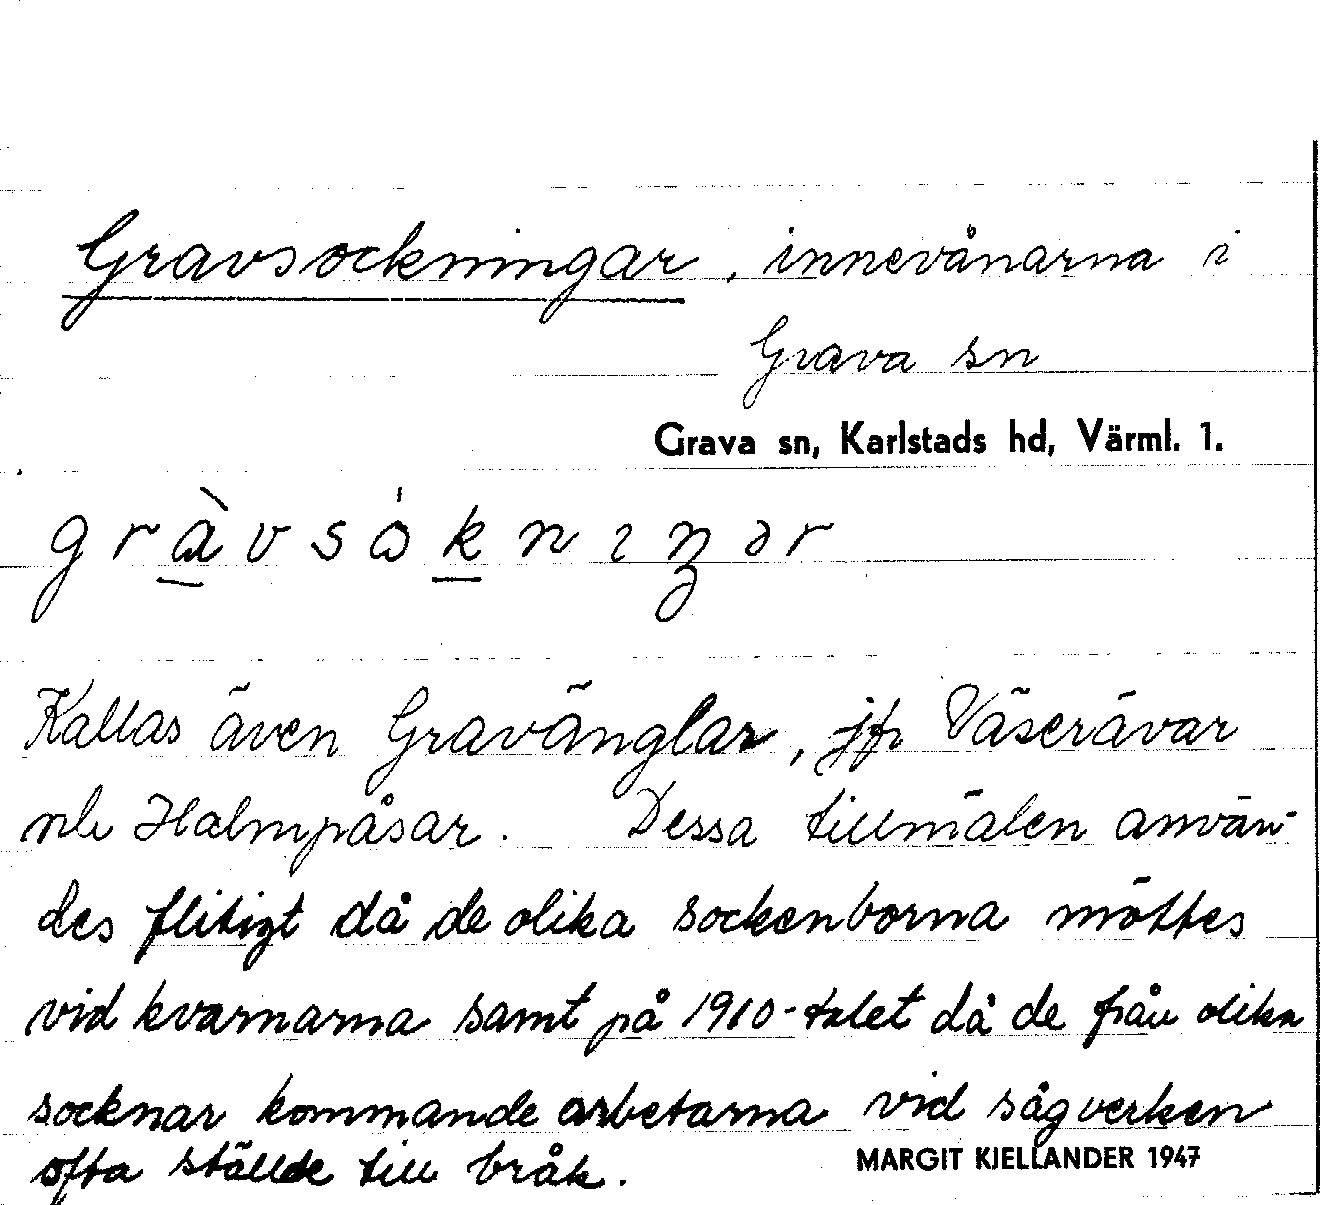 Gravsockningar, innevånarna i
Grava sn
Grava sn, Karlstads hd, Värml. 1.
Kallas även Gravänglar, jfr Väserävar
och Halmpåsar. Dessa tillmälen använ-
des flitigt då de olika sockenborna möttes
vid kvarnarna samt på 1910-talet då de från olika
socknar kommande arbetarna vid sågverken
ofta ställde till bråk.
MARGIT KJELLANDER 1947